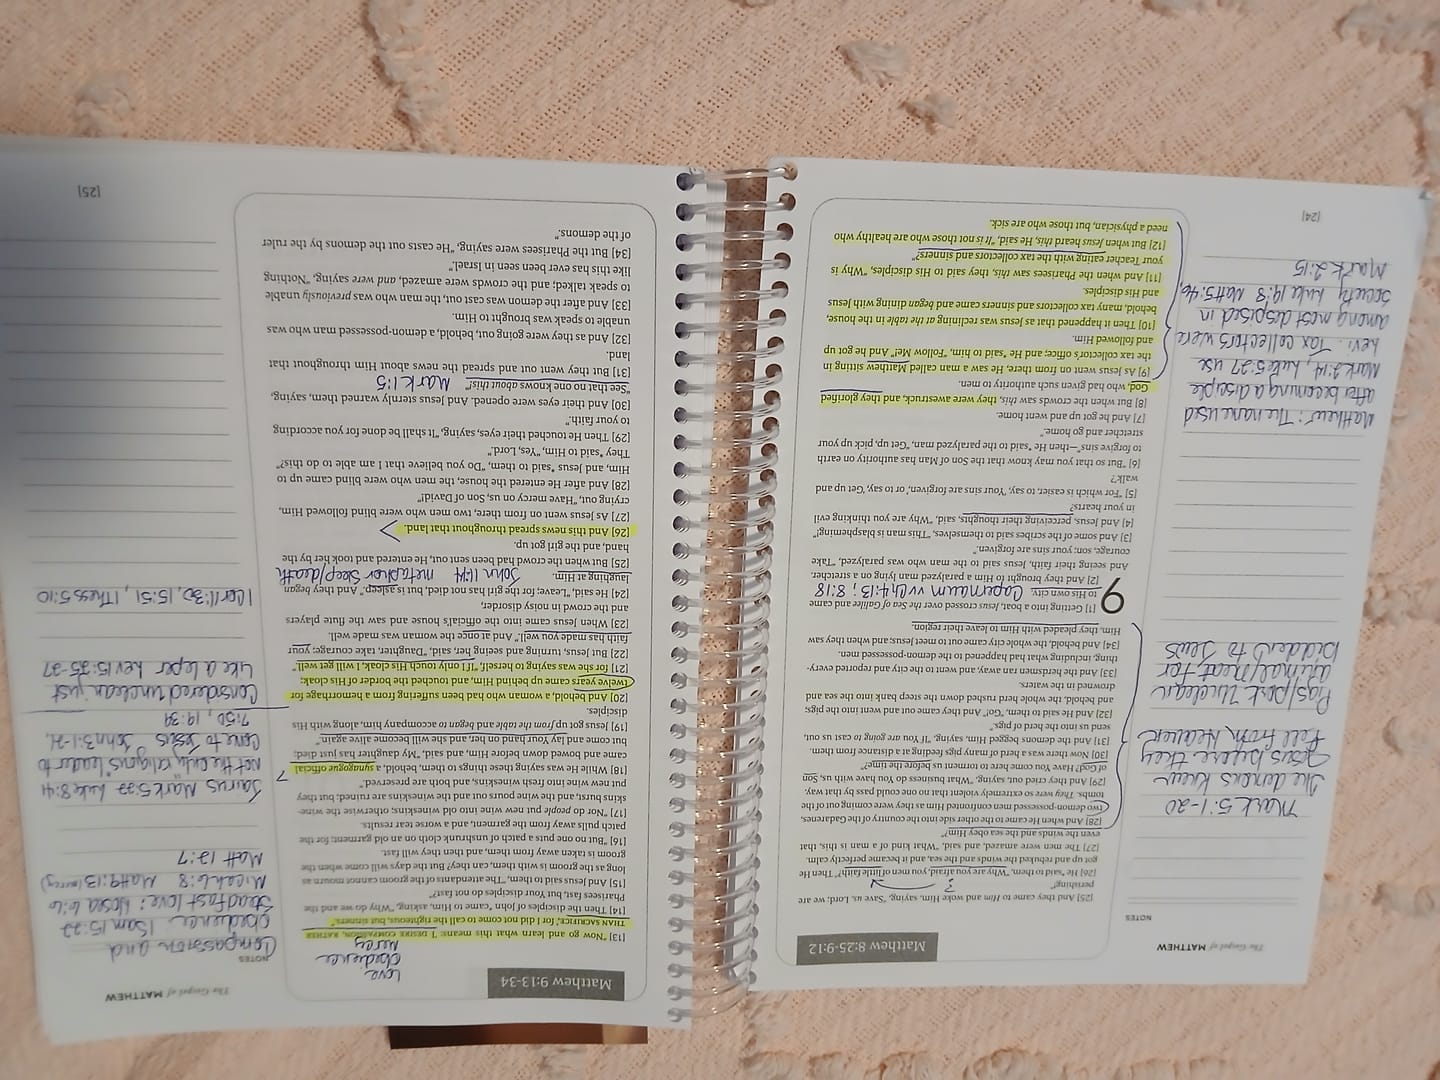 The Gospel of MATTHEW
NOTES
Mark 5:1-20
The demons knew
Jesus before they
fell from Heaven
Pigs/pork unclean
animal/meat for
bidden to Jews
Matthew: The name used
after becoming a disciple
Mark 2:14, Luke 5:27 use
Levi. Tax collectors were
among most despised in
society Luke 19:8 Matt 5:46,
Mark 2:15
[24]
Matthew 8:25-9:12
[25] And they came to Him and woke Him, saying, "Save us, Lord; we are
perishing!"
?
[26] He said to them, "Why are you afraid, you men of little faith?" Then He
got up and rebuked the winds and the sea, and it became perfectly calm.
[27] The men were amazed, and said, "What kind of a man is this, that
even the winds and the sea obey Him?"
[28] And when He came to the other side into the country of the Gadarenes,
two demon-possessed men confronted Him as they were coming out of the
tombs. They were so extremely violent that no one could pass by that way.
[29] And they cried out, saying, "What business do You have with us, Son
of God? Have You come here to torment us before the time?"
[30] Now there was a herd of many pigs feeding at a distance from them.
[31] And the demons begged Him, saying, "If You are going to cast us out,
send us into the herd of pigs."
[32] And He said to them, "Go!" And they came out and went into the pigs;
and behold, the whole herd rushed down the steep bank into the sea and
drowned in the waters.
[33] And the herdsmen ran away, and went to the city and reported every-
thing, including what had happened to the demon-possessed men.
[34] And behold, the whole city came out to meet Jesus; and when they saw
Him, they pleaded with Him to leave their region.
9 [1] Getting into a boat, Jesus crossed over the Sea of Galilee and came
to His own city. Capernaum v Ch 4:13; 8:18
[2] And they brought to Him a paralyzed man lying on a stretcher.
And seeing their faith, Jesus said to the man who was paralyzed, "Take
courage, son; your sins are forgiven."
[3] And some of the scribes said to themselves, "This man is blaspheming!"
[4] And Jesus, perceiving their thoughts, said, "Why are you thinking evil
in your hearts?
[5] "For which is easier, to say, 'Your sins are forgiven,' or to say, 'Get up and
walk'?
[6] "But so that you may know that the Son of Man has authority on earth
to forgive sins"—then He *said to the paralyzed man, "Get up, pick up your
stretcher and go home."
[7] And he got up and went home.
[8] But when the crowds saw this, they were awestruck, and they glorified
God, who had given such authority to men.
[9] As Jesus went on from there, He saw a man called Matthew sitting in
the tax collector's office; and He *said to him, "Follow Me!" And he got up
and followed Him.
[10] Then it happened that as Jesus was reclining at the table in the house,
behold, many tax collectors and sinners came and began dining with Jesus
and His disciples.
[11] And when the Pharisees saw this, they said to His disciples, "Why is
your Teacher eating with the tax collectors and sinners?"
[12] But when Jesus heard this, He said, "It is not those who are healthy who
need a physician, but those who are sick.
Matthew 9:13-34
Love
Obedience
Mercy
[13] "Now go and learn what this means: 'I DESIRE COMPASSION, RATHER
THAN SACRIFICE,' for I did not come to call the righteous, but sinners."
[14] Then the disciples of John *came to Him, asking, "Why do we and the
Pharisees fast, but Your disciples do not fast?"
[15] And Jesus said to them, "The attendants of the groom cannot mourn as
long as the groom is with them, can they? But the days will come when the
groom is taken away from them, and then they will fast.
[16] "But no one puts a patch of unshrunk cloth on an old garment; for the
patch pulls away from the garment, and a worse tear results.
[17] "Nor do people put new wine into old wineskins; otherwise the wine-
skins burst, and the wine pours out and the wineskins are ruined; but they
put new wine into fresh wineskins, and both are preserved."
[18] While He was saying these things to them, behold, a synagogue official
came and bowed down before Him, and said, "My daughter has just died;
but come and lay Your hand on her, and she will become alive again."
[19] Jesus got up from the table and began to accompany him, along with His
disciples.
[20] And behold, a woman who had been suffering from a hemorrhage for
twelve years came up behind Him, and touched the border of His cloak;
[21] for she was saying to herself, "If I only touch His cloak, I will get well."
[22] But Jesus, turning and seeing her, said, "Daughter, take courage; your
faith has made you well." And at once the woman was made well.
[23] When Jesus came into the official's house and saw the flute players
and the crowd in noisy disorder,
[24] He said, "Leave; for the girl has not died, but is asleep." And they began
laughing at Him. John 11:14 metaphor sleep/death
[25] But when the crowd had been sent out, He entered and took her by the
hand, and the girl got up.
[26] And this news spread throughout that land.
[27] As Jesus went on from there, two men who were blind followed Him,
crying out, "Have mercy on us, Son of David!"
[28] And after He entered the house, the men who were blind came up to
Him, and Jesus *said to them, "Do you believe that I am able to do this?"
They *said to Him, "Yes, Lord."
[29] Then He touched their eyes, saying, "It shall be done for you according
to your faith."
[30] And their eyes were opened. And Jesus sternly warned them, saying,
"See that no one knows about this!" Mark 1:5
[31] But they went out and spread the news about Him throughout that
land.
[32] And as they were going out, behold, a demon-possessed man who was
unable to speak was brought to Him.
[33] And after the demon was cast out, the man who was previously unable
to speak talked; and the crowds were amazed, and were saying, "Nothing
like this has ever been seen in Israel."
[34] But the Pharisees were saying, "He casts out the demons by the ruler
of the demons."
The Gospel of MATTHEW
NOTES
Compassion and
obedience. 1 Sam 15:22
Steadfast love: Hosea 6:6
Micah 6:8 Matt 9:13 (mercy)
Matt 12:7
Jairus Mark 5:22 Luke 8:41
Not the only "religious" leader to
come to Jesus John 3:1-21,
7:50, 19:39
Considered unclean just
like a leper Lev 15:25-27
1 Cor 11:30, 15:51, 1 Thess 5:10
[25]